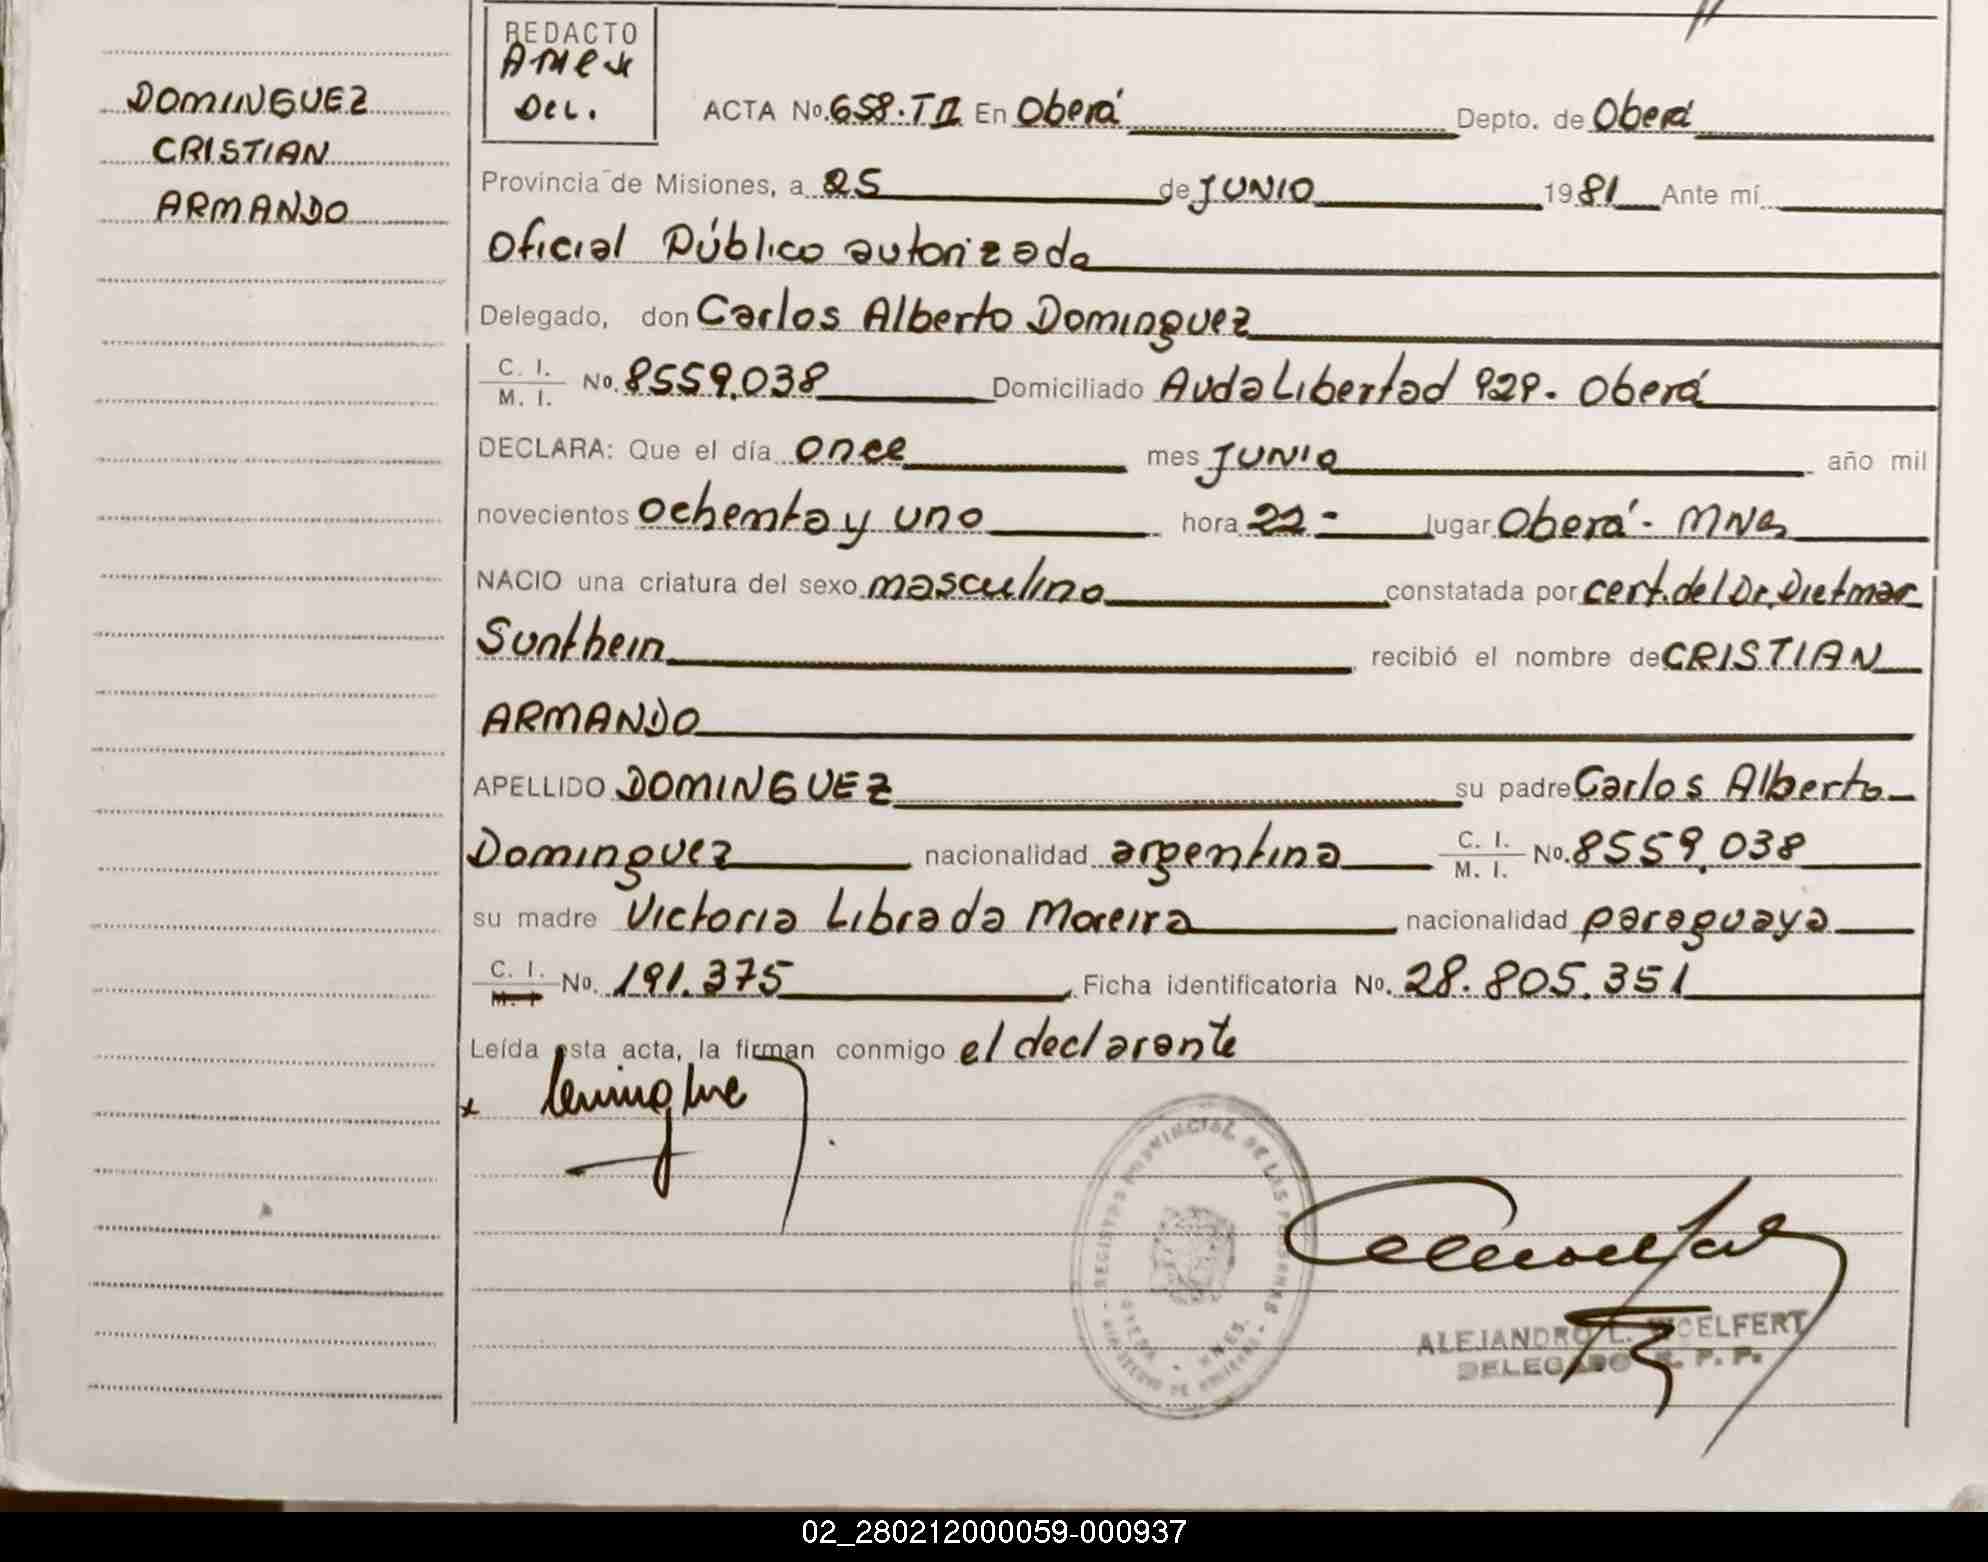 DOMINGUEZ
CRISTIAN
ARMANDO
REDACTO
DEL.
ACTA No. 658.TII En Oberá Depto. de Oberá
Provincia de Misiones, a 25 de JUNIO 1981 Ante mí
Oficial Público autorizado
Delegado, don Carlos Alberto Dominguez
C. I. / M. I. No. 8559.038 Domiciliado Avda Libertad 929. Oberá
DECLARA: Que el día once mes JUNIO año mil
novecientos ochenta y uno hora 22- lugar Oberá - MNes
NACIO una criatura del sexo masculino constatada por cert. del Dr. Dietmar
Sunthein recibió el nombre de CRISTIAN
ARMANDO
APELLIDO DOMINGUEZ su padre Carlos Alberto
Dominguez nacionalidad argentina C. I. / M. I. No. 8559.038
su madre Victoria Librada Moreira nacionalidad paraguaya
C. I. / M. I. No. 191.375 Ficha identificatoria No. 28.805.351
Leída esta acta, la firman conmigo el declarante
x
REGISTRO PROVINCIAL DE LAS PERSONAS
OBERA - MNES.
MINISTERIO DE GOBIERNO
ALEJANDRO L. WOELFERT
DELEGADO R. P. P.
02_280212000059-000937